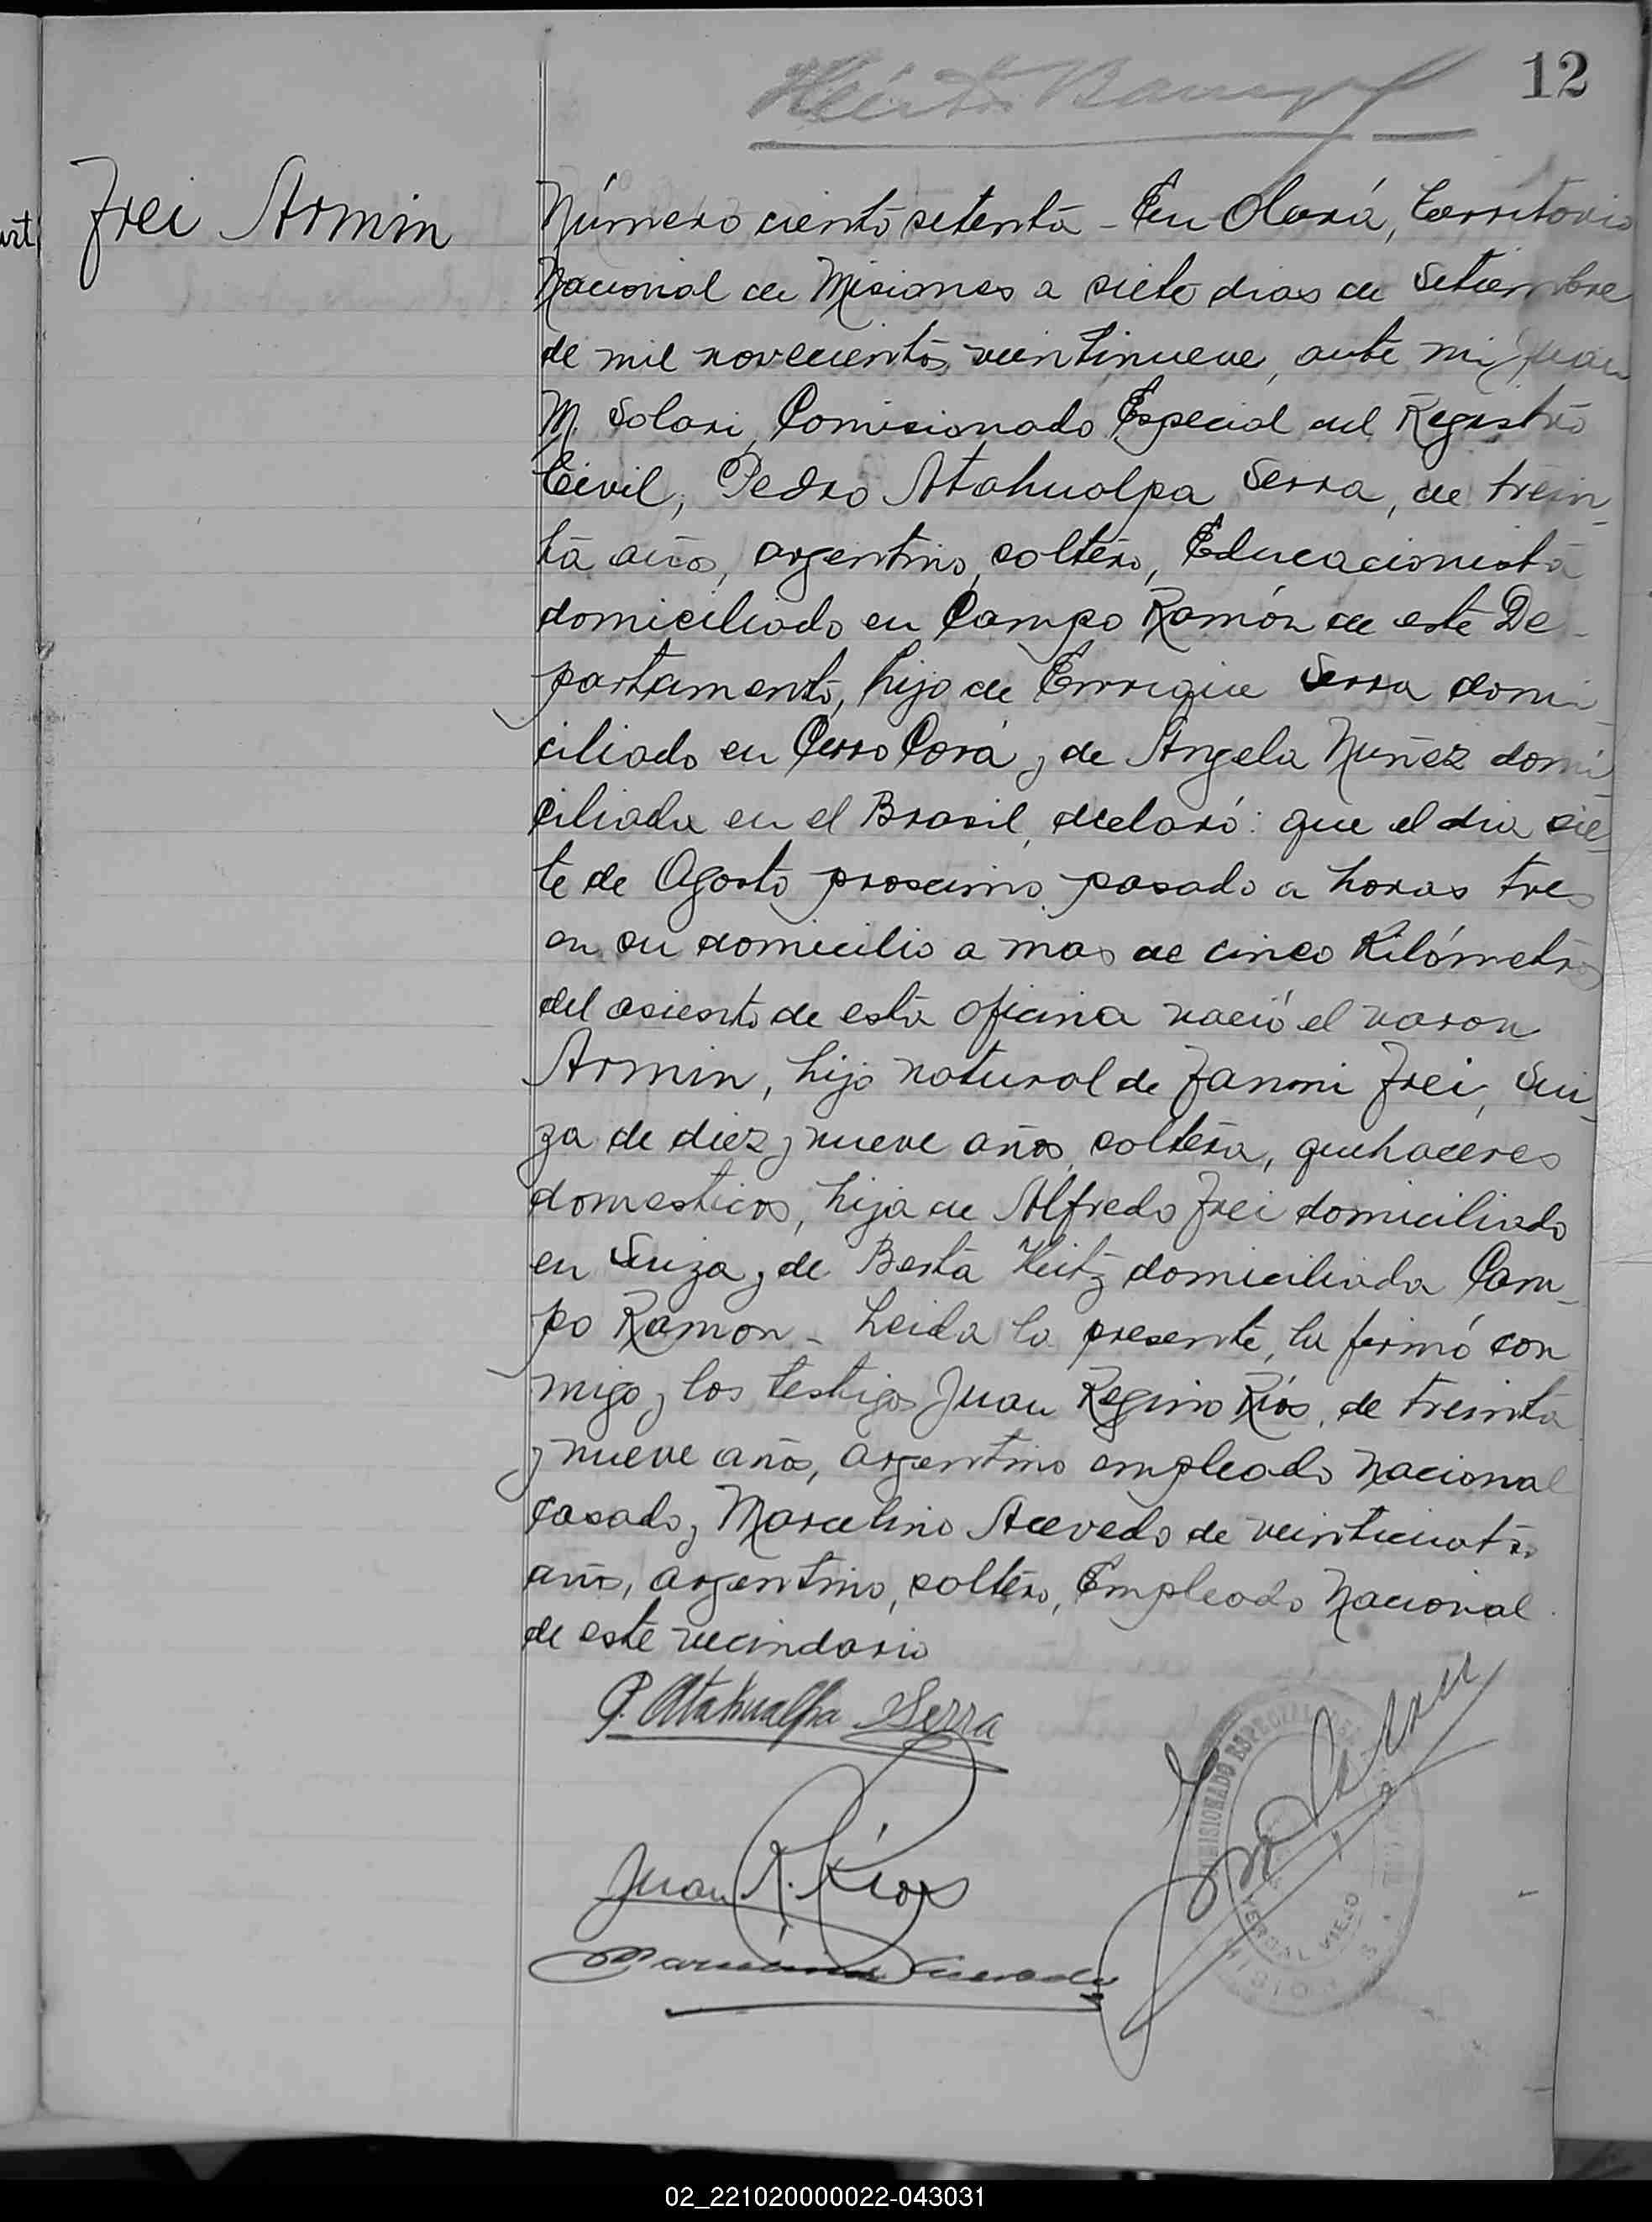 12
Frei Armin
Número ciento setenta - En Oberá, Territorio
Nacional de Misiones a siete dias de Setiembre
de mil novecientos veintinueve, ante mi Juan
M. Solari, Comisionado Especial del Registro
Civil, Pedro Atahualpa Serra, de trein-
ta años, argentino, soltero, Educacionista
domiciliado en Campo Ramón de este De-
partamento, hijo de Enrique Serra domi-
ciliado en Cerro Corá y de Angela Nuñez domi-
ciliada en el Brasil, declaró: que el dia sie-
te de Agosto proximo pasado a horas tres
en su domicilio a mas de cinco Kilómetros
del asiento de esta oficina nació el varon
Armin, hijo natural de Fanni Frei, Sui-
za de diez y nueve años, soltera, quehaceres
domesticos, hija de Alfredo Frei domiciliado
en Suiza y de Berta Heitz domiciliada Cam-
po Ramon - Leida la presente, la firmó con
migo y los testigos Juan Regino Rios, de treinta
y nueve años, argentino empleado nacional
casado y Marcelino Acevedo de veinticuatro
años, argentino, soltero, Empleado Nacional
de este vecindario
P. Atahualpa Serra
Juan R. Rios
Marcelino Acevedo
COMISIONADO ESPECIAL
YERBAL VIEJO
MISIONES
02_221020000022-043031